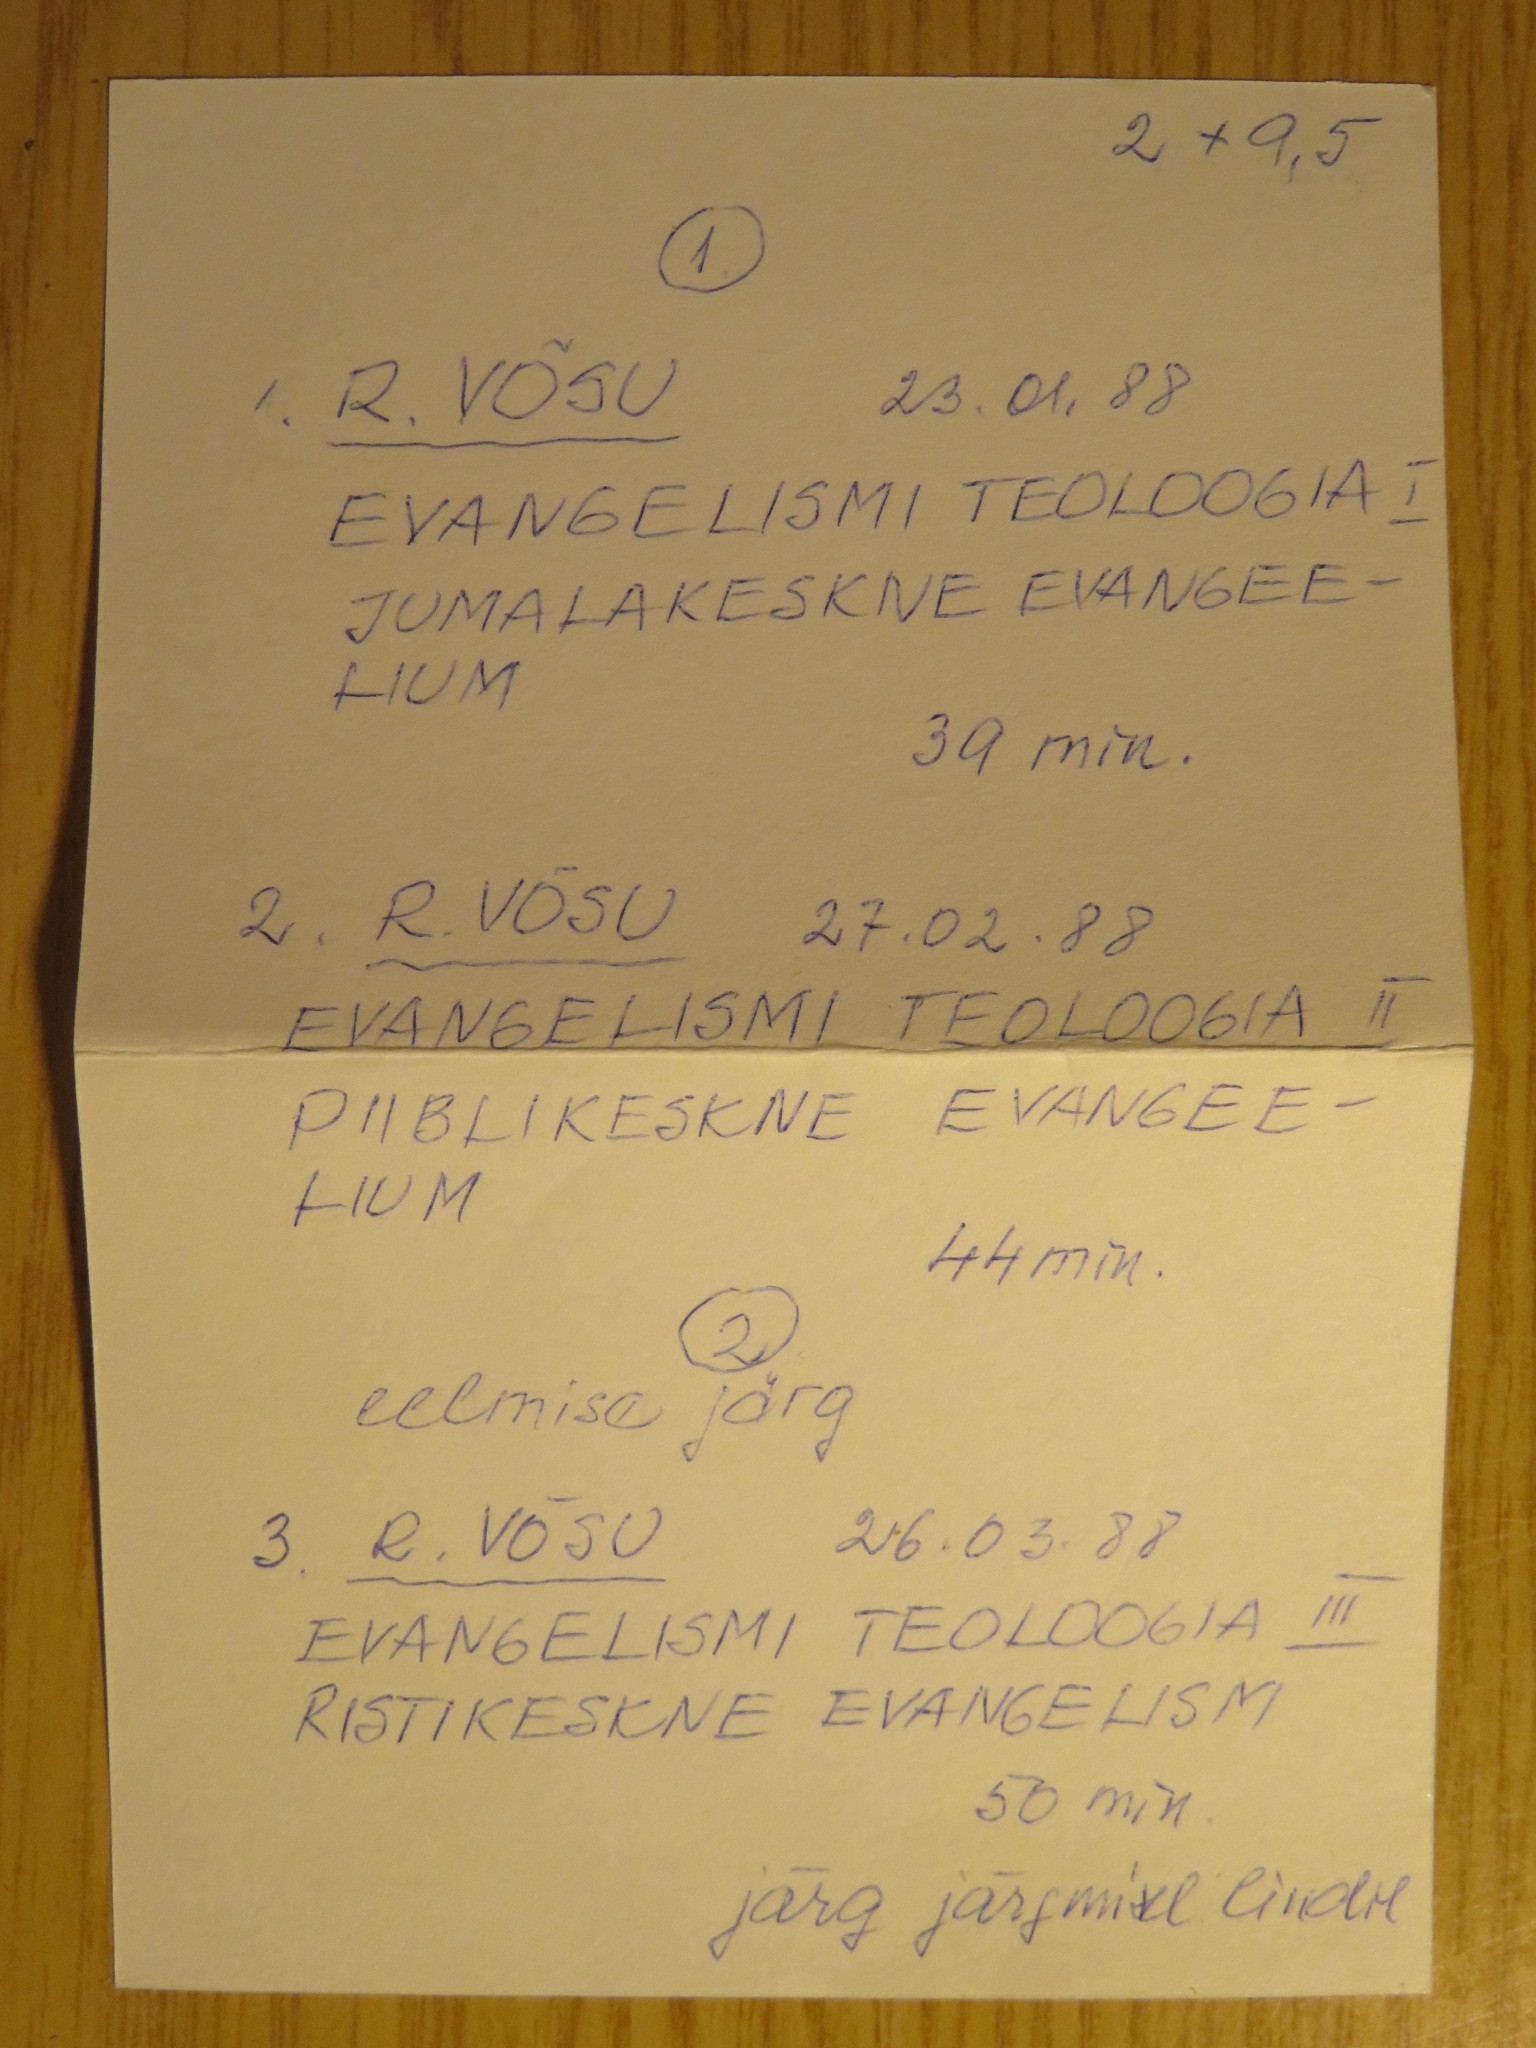 2 + 9,5
1
1. R. VÕSU 23.01.88
EVANGELISMI TEOLOOGIA I
JUMALAKESKNE EVANGEE-
LIUM
39 min.
2. R. VÕSU 27.02.88
EVANGELISMI TEOLOOGIA II
PIIBLIKESKNE EVANGEE-
LIUM
44 min.
2
eelmise järg
3. R. VÕSU 26.03.88
EVANGELISMI TEOLOOGIA III
RISTIKESKNE EVANGELISM
50 min.
järg järgmisel lindil